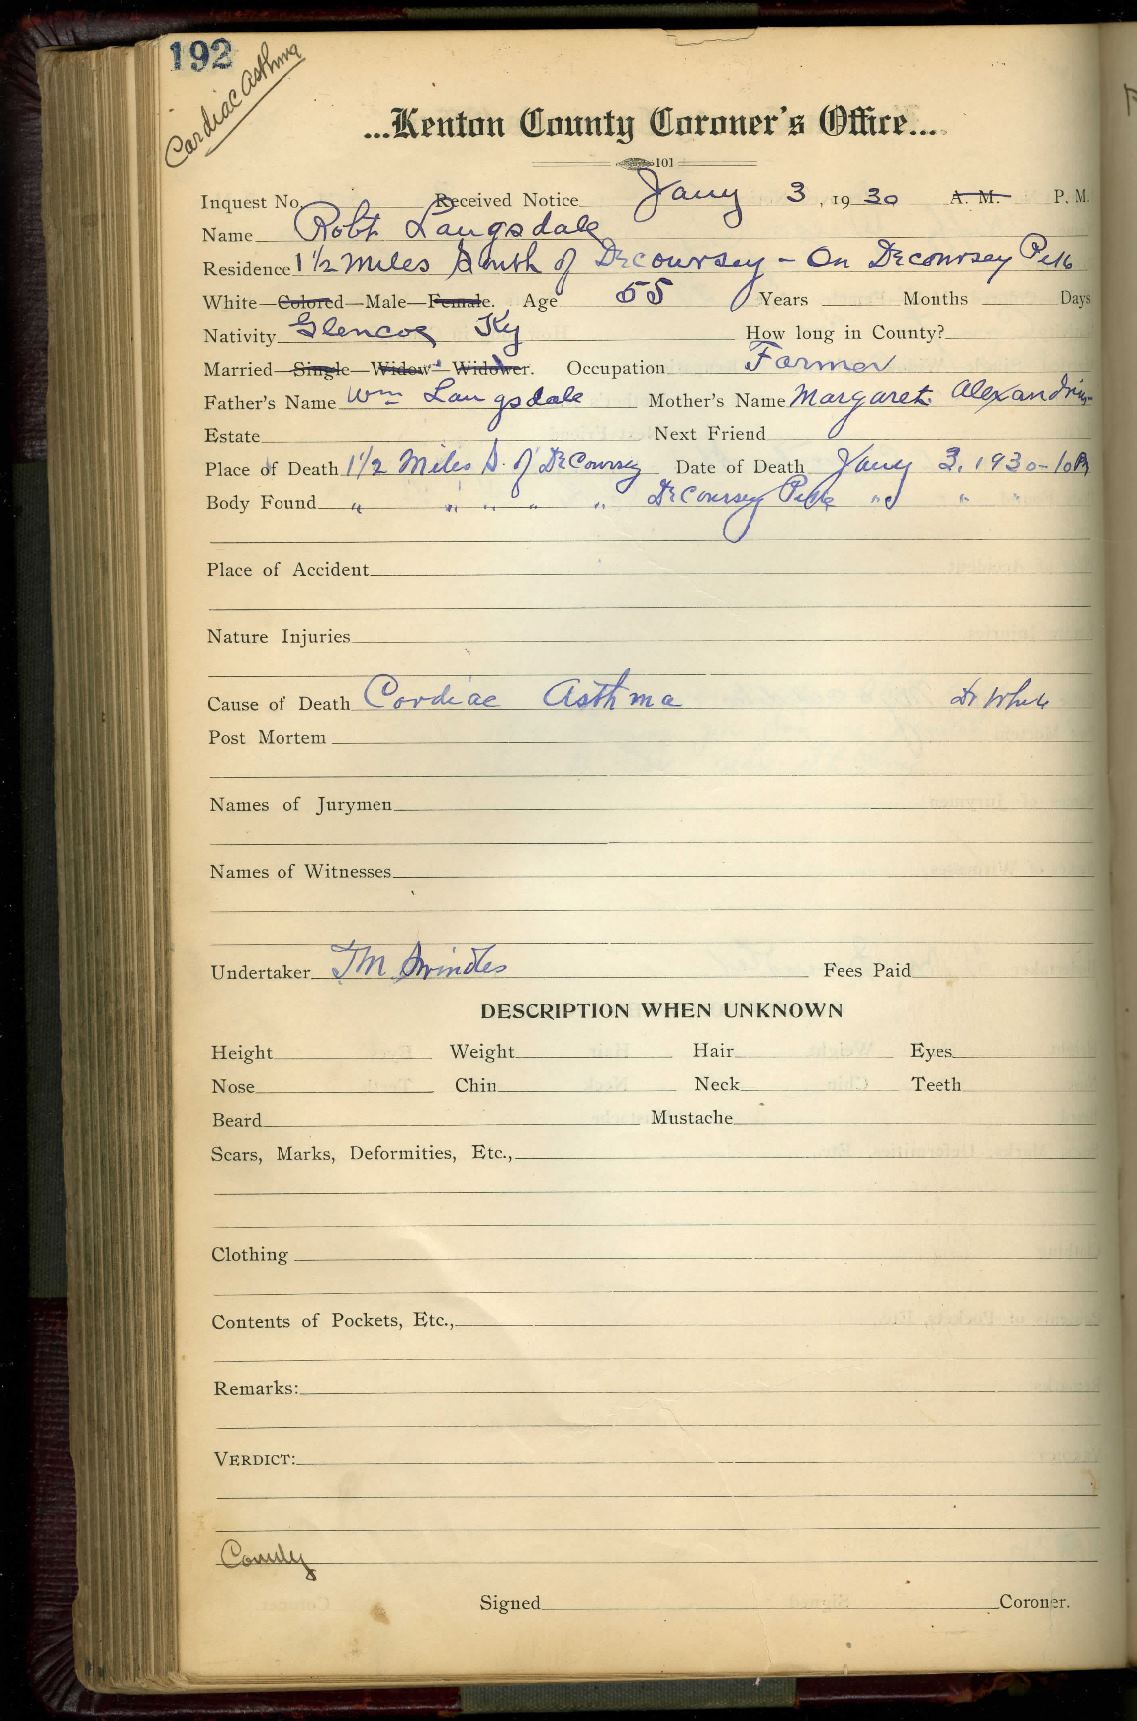 192
Cardiac Asthma
...Kenton County Coroner's Office...
101
Inquest No. Received Notice Jany 3, 1930 A. M. P. M.
Name Robt Langsdale
Residence 1 1/2 Miles South of Decoursey - On Decoursey Pike
White—Colored—Male—Female. Age 55 Years Months Days
Nativity Glencoe Ky How long in County?
Married—Single—Widow—Widower. Occupation Farmer
Father's Name Wm Langsdale Mother's Name Margaret
Estate Next Friend
Place of Death 1 1/2 Miles S. of DeCoursey Date of Death Jany 3, 1930-10P
Body Found " " " " " DeCoursey Pike " " "
Place of Accident
Nature Injuries
Cause of Death Cardiac Asthma Dr White
Post Mortem
Names of Jurymen
Names of Witnesses
Undertaker Swindles Fees Paid
DESCRIPTION WHEN UNKNOWN
Height Weight Hair Eyes
Nose Chin Neck Teeth
Beard Mustache
Scars, Marks, Deformities, Etc.,
Clothing
Contents of Pockets, Etc.,
Remarks:
VERDICT:
County
Signed Coroner.